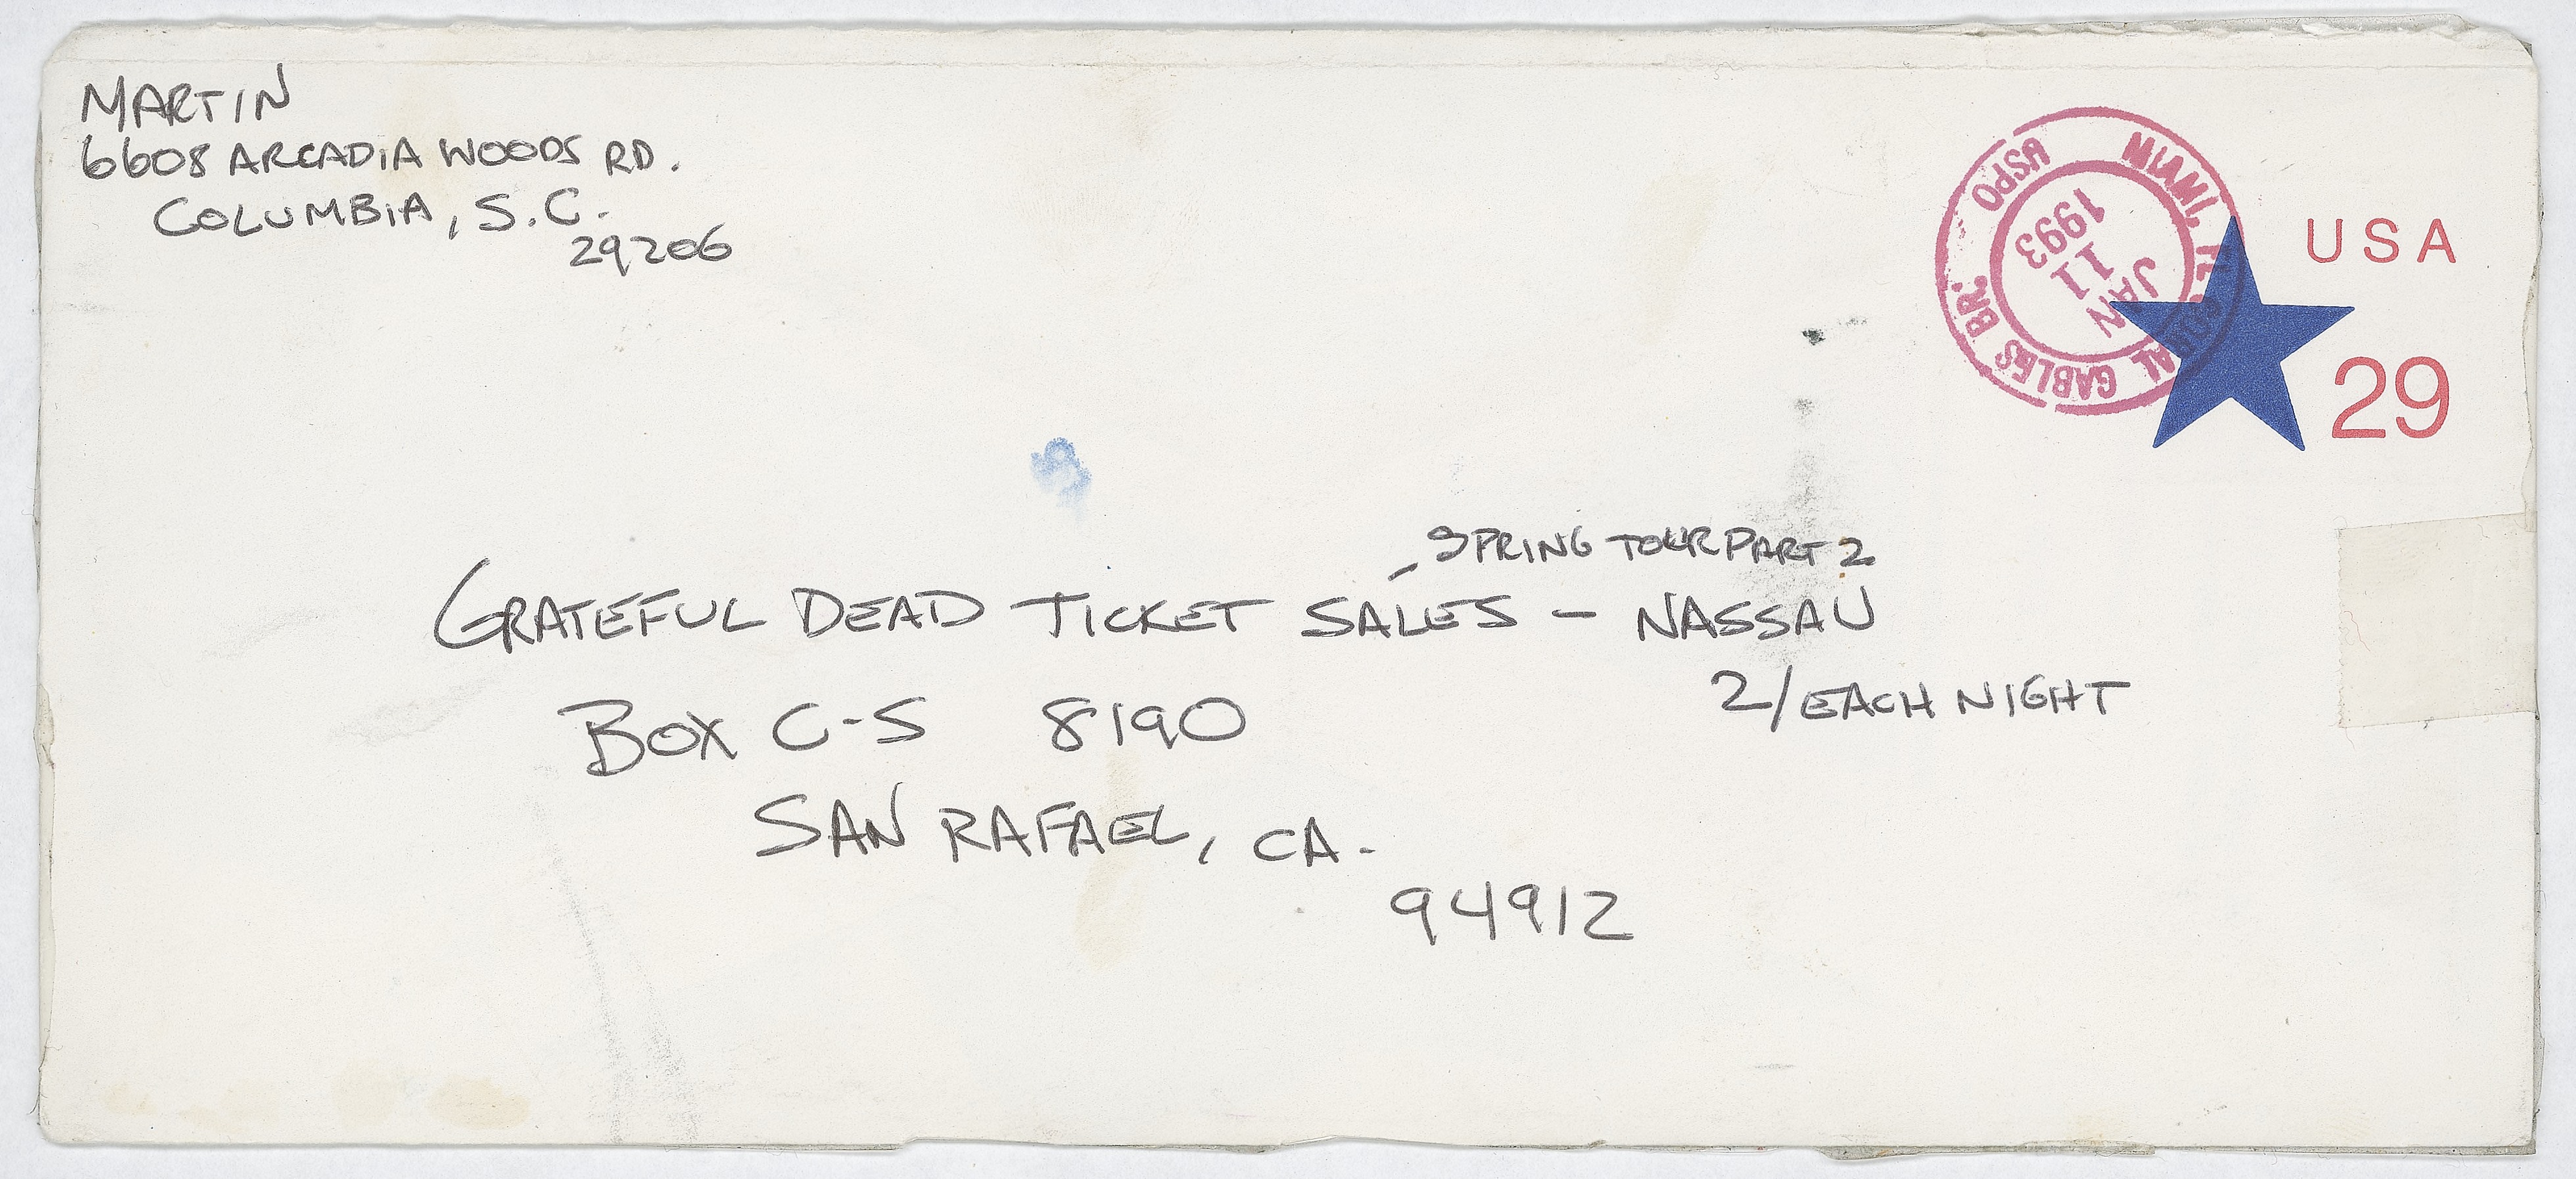 MARTIN
6608 ARCADIA WOODS RD.
COLUMBIA, S.C.
29206
MIAMI, FL
CORAL GABLES BR.
USPO
JAN
11
1993
USA
29
- SPRING TOUR PART 2
GRATEFUL DEAD TICKET SALES - NASSAU
2/EACH NIGHT
BOX C-S 8190
SAN RAFAEL, CA.
94912